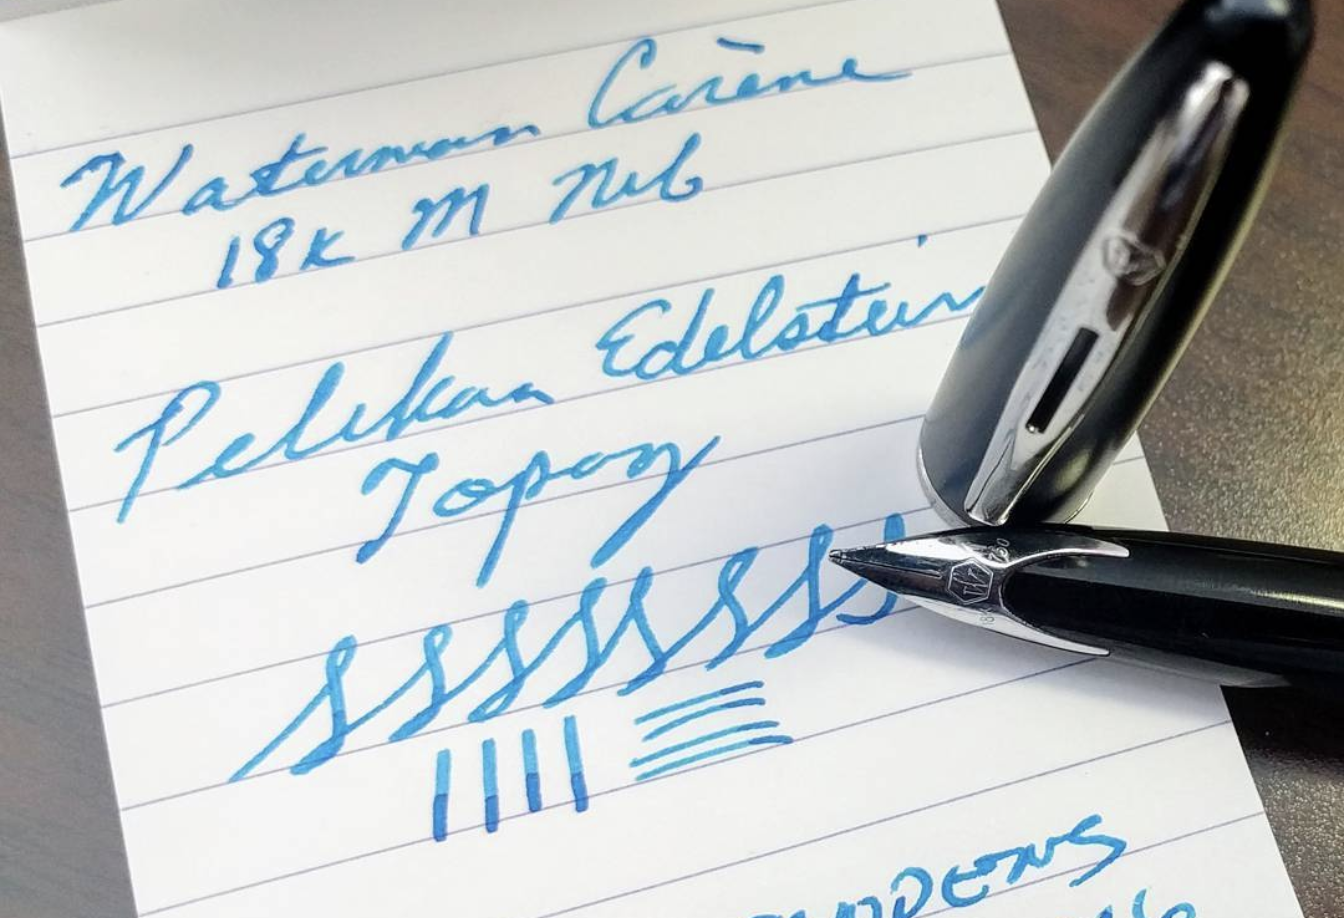 Waterman Carène
18k M Nib
Pelikan Edelstein
Topaz